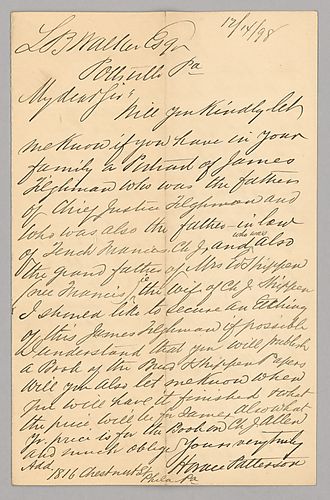 12/14/98
L B Walker Esqr
Pottsville Pa
My dear Sir:
Will you Kindly let
me know if you have in your
family a Portrait of James
Tilghman who was the father
of Chief Justice Tilghman and
who was also the father-in law
of Tench Francis, Ch J., and also
who was
the grand father of Mrs Ed Shippen
(nee Francis) the wife of Ch J. Shippen
I should like to secure an Etching
of this James Tilghman if possible
I understand that you will publish
a Book of the Burd & Shippen Papers
Will you also let me know when
you will have it finished & what
the price will be for same, Also what
yr. price is for the Book on Ch J Allen
and much oblige Yours very truly
Add. Horace Patterson
1816 Chestnut St
Phila Pa